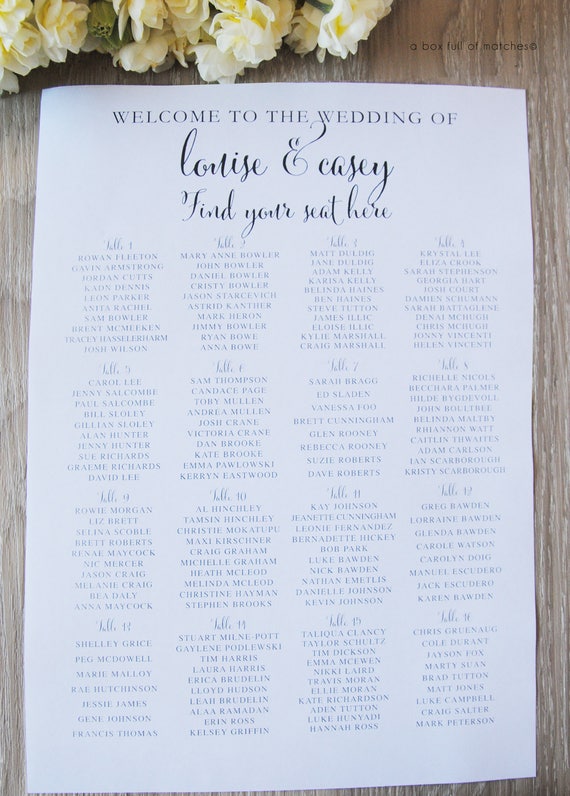 a box full of matches©
WELCOME TO THE WEDDING OF
louise & casey
Find your seat here
Table 1
ROWAN FLEETON
GAVIN ARMSTRONG
JORDAN CUTTS
KADN DENNIS
LEON PARKER
ANITA RACHEL
SAM BOWLER
BRENT MCMEEKEN
TRACEY HASSELERHARM
JOSH WILSON
Table 2
MARY ANNE BOWLER
JOHN BOWLER
DANIEL BOWLER
CRISTY BOWLER
JASON STARCEVICH
ASTRID KANTHER
MARK HERON
JIMMY BOWLER
RYAN BOWE
ANNA BOWE
Table 3
MATT DULDIG
JANE DULDIG
ADAM KELLY
KARISA KELLY
BELINDA HAINES
BEN HAINES
STEVE TUTTON
JAMES ILLIC
ELOISE ILLIC
KYLIE MARSHALL
CRAIG MARSHALL
Table 4
KRYSTAL LEE
ELIZA CROOK
SARAH STEPHENSON
GEORGIA HART
JOSH COURT
DAMIEN SCHUMANN
SARAH BATTAGLENE
DENAI MCHUGH
CHRIS MCHUGH
JONNY VINCENTI
HELEN VINCENTI
Table 5
CAROL LEE
JENNY SALCOMBE
PAUL SALCOMBE
BILL SLOLEY
GILLIAN SLOLEY
ALAN HUNTER
JENNY HUNTER
SUE RICHARDS
GRAEME RICHARDS
DAVID LEE
Table 6
SAM THOMPSON
CANDACE PAGE
TOBY MULLEN
ANDREA MULLEN
JOSH CRANE
VICTORIA CRANE
DAN BROOKE
KATE BROOKE
EMMA PAWLOWSKI
KERRYN EASTWOOD
Table 7
SARAH BRAGG
ED SLADEN
VANESSA FOO
BRETT CUNNINGHAM
GLEN ROONEY
REBECCA ROONEY
SUZIE ROBERTS
DAVE ROBERTS
Table 8
RICHELLE NICOLS
BECCHARA PALMER
HILDE BYGDEVOLL
JOHN BOULTBEE
BELINDA MALTBY
RHIANNON WATT
CAITLIN THWAITES
ADAM CARLSON
IAN SCARBOROUGH
KRISTY SCARBOROUGH
Table 9
ROWIE MORGAN
LIZ BRETT
SELINA SCOBLE
BRETT ROBERTS
RENAE MAYCOCK
NIC MERCER
JASON CRAIG
MELANIE CRAIG
BEA DALY
ANNA MAYCOCK
Table 10
AL HINCHLEY
TAMSIN HINCHLEY
CHRISTIE MOKATUPU
MAXI KIRSCHNER
CRAIG GRAHAM
MICHELLE GRAHAM
HEATH MCLEOD
MELINDA MCLEOD
CHRISTINE HAYMAN
STEPHEN BROOKS
Table 11
KAY JOHNSON
JEANETTE CUNNINGHAM
LEONIE FERNANDEZ
BERNADETTE HICKEY
BOB PARK
LUKE BAWDEN
NICK BAWDEN
NATHAN EMETLIS
DANIELLE JOHNSON
KEVIN JOHNSON
Table 12
GREG BAWDEN
LORRAINE BAWDEN
GLENDA BAWDEN
CAROLE WATSON
CAROLYN DOIG
MANUEL ESCUDERO
JACK ESCUDERO
KAREN BAWDEN
Table 13
SHELLEY GRICE
PEG MCDOWELL
MARIE MALLOY
RAE HUTCHINSON
JESSIE JAMES
GENE JOHNSON
FRANCIS THOMAS
Table 14
STUART MILNE-POTT
GAYLENE PODLEWSKI
TIM HARRIS
LAURA HARRIS
ERICA BRUDELIN
LLOYD HUDSON
LEAH BRUDELIN
ALAA RAMADAN
ERIN ROSS
KELSEY GRIFFIN
Table 15
TALIQUA CLANCY
TAYLOR SCHULTZ
TIM DICKSON
EMMA MCEWEN
NIKKI LAIRD
TRAVIS MORAN
ELLIE MORAN
KATE RICHARDSON
ADEN TUTTON
LUKE HUNYADI
HANNAH ROSS
Table 16
CHRIS GRUENAUG
COLE DURANT
JAYSON FOX
MARTY SUAN
BRAD TUTTON
MATT JONES
LUKE CAMPBELL
CRAIG SALTER
MARK PETERSON